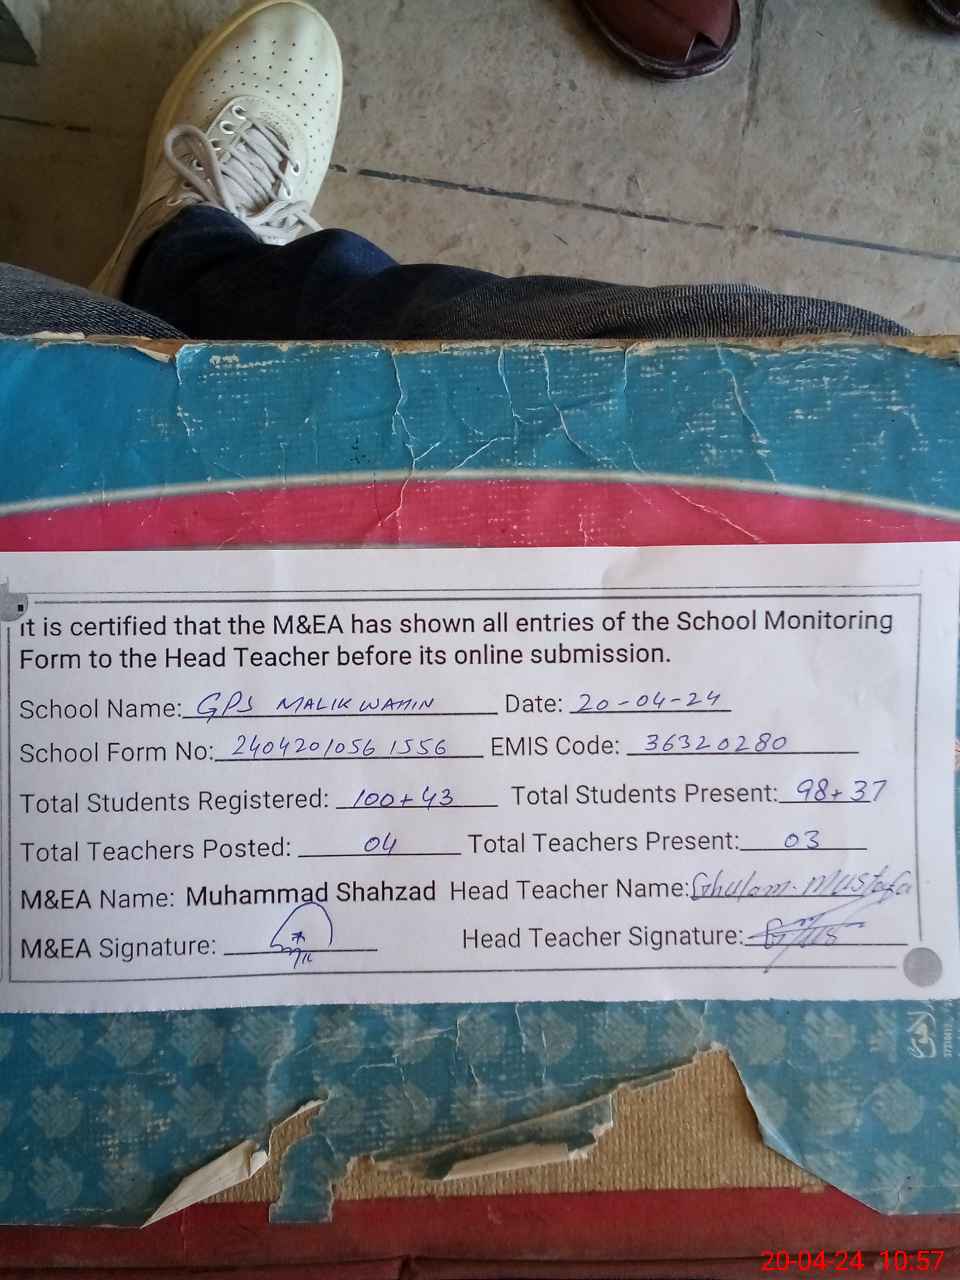 It is certified that the M&EA has shown all entries of the School Monitoring
Form to the Head Teacher before its online submission.
School Name: GPS MALIK WAHIN Date: 20-04-24
School Form No: 2404201056 1556 EMIS Code: 36320280
Total Students Registered: 100+43 Total Students Present: 98+37
Total Teachers Posted: 04 Total Teachers Present: 03
M&EA Name: Muhammad Shahzad Head Teacher Name: Ghulam Mustafa
M&EA Signature: Head Teacher Signature:
20-04-24 10:57